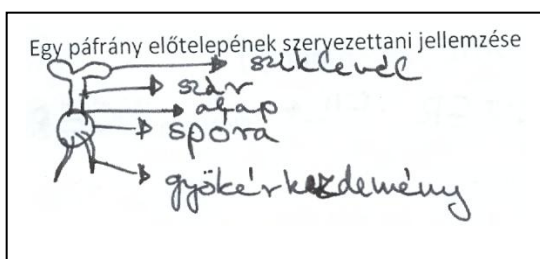 Egy páfrány előtelepének szervezettani jellemzése
sziklevél
szár
alap
spóra
gyökérkezdemény